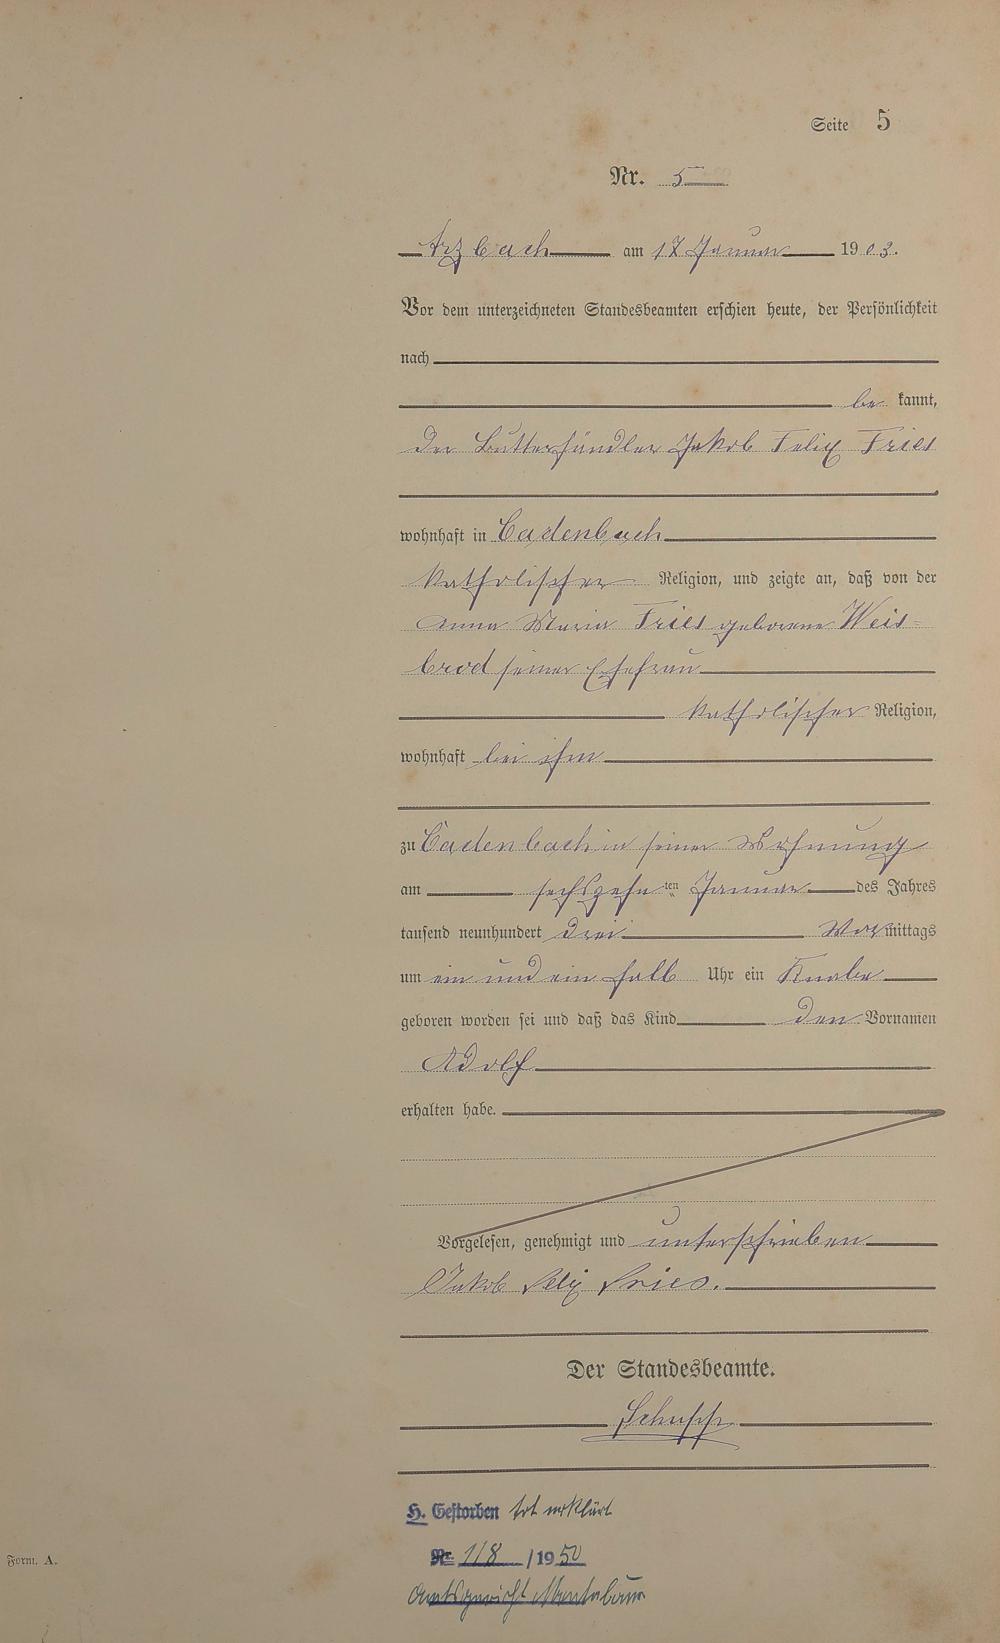 Seite 5
Nr. 5
Arzbach am 17 Januar 1903.
Vor dem unterzeichneten Standesbeamten erschien heute, der Persönlichkeit
nach
be kannt,
der Butterhändler Jakob Felix Fries
wohnhaft in Cadenbach
katholischer Religion, und zeigte an, daß von der
Anna Maria Fries geborene Weis-
brod seiner Ehefrau
katholischer Religion,
wohnhaft bei ihm
zu Cadenbach in seiner Wohnung
am sechszehnten Januar des Jahres
tausend neunhundert drei Vormittags
um ein und ein halb Uhr ein Knabe
geboren worden sei und daß das Kind den Vornamen
Adolf
erhalten habe.
Vorgelesen, genehmigt und unterschrieben
Jakob Felix Fries.
Der Standesbeamte.
Schupp
H. Gestorben tot erklärt
Nr. 118 /1950
Amtsgericht Montabaur
Form. A.